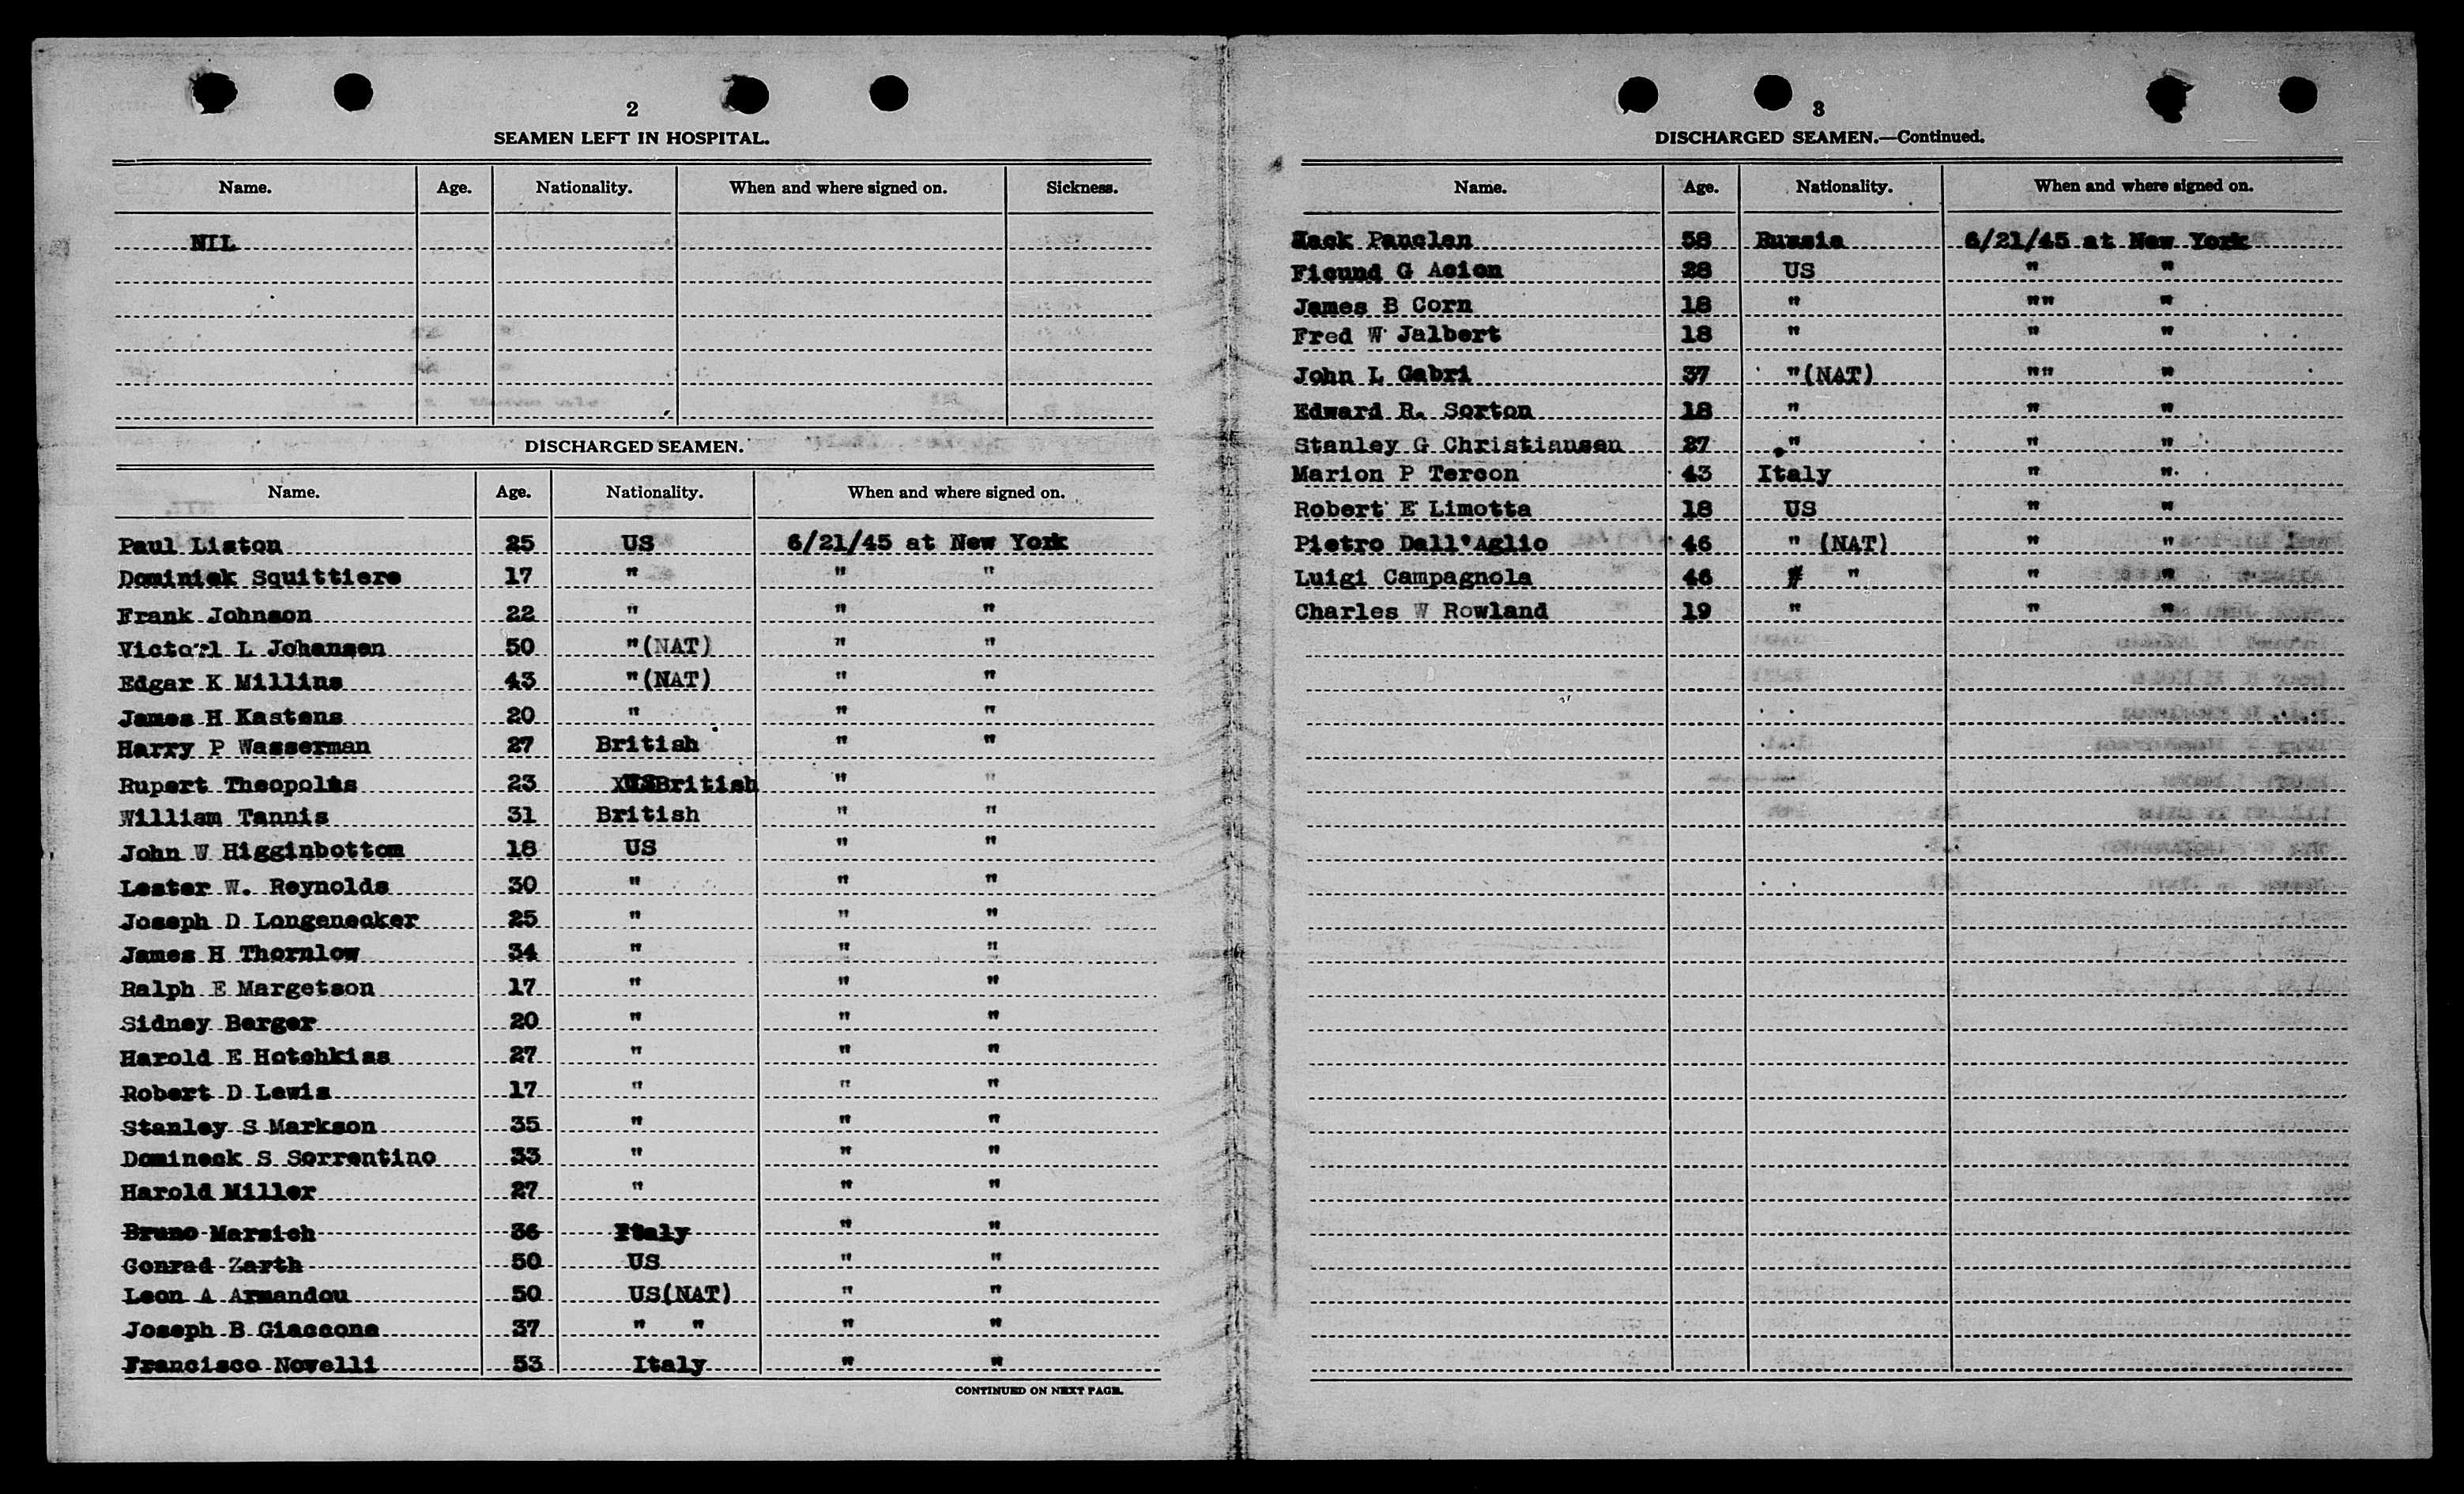 2
SEAMEN LEFT IN HOSPITAL.
Name. Age. Nationality. When and where signed on. Sickness.
NIL
DISCHARGED SEAMEN.
Name. Age. Nationality. When and where signed on.
Paul Liston 25 US 6/21/45 at New York
Dominick Squittiere 17 " " "
Frank Johnson 22 " " "
L Johansen 50 "(NAT) " "
Edgar K Millins 43 "(NAT) " "
James H Kastens 20 " " "
Harry P Wasserman 27 British " "
Rupert 23 British " "
William Tannis 31 British " "
John W Higginbottom 18 US " "
Lester W. Reynolds 30 " " "
Joseph D Longenecker 25 " " "
James H Thornlow 34 " " "
Ralph E Margetson 17 " " "
Sidney Berger 20 " " "
Harold E Hotchkiss 27 " " "
Robert D Lewis 17 " " "
Stanley S Markson 35 " " "
Domineck S Sorrentino 33 " " "
Harold Miller 27 " " "
Bruno Marsich 36 Italy " "
Conrad Zarth 50 US " "
Leon A Armandou 50 US(NAT) " "
Joseph B Giaccone 37 " " " "
Francisco Novelli 53 Italy " "
CONTINUED ON NEXT PAGE.
3
DISCHARGED SEAMEN.—Continued.
Name. Age. Nationality. When and where signed on.
Panclen 58 Russia 6/21/45 at New York
Ficund G Acien 28 US " "
James B Corn 18 " "" "
Fred W Jalbert 18 " " "
John L Gabri 37 "(NAT) "" "
Edward R. Sorton 18 " " "
Stanley G Christiansen 27 " " "
Marion P Tercon 43 Italy " "
Robert E Limotta 18 US " "
Pietro Dall'Aglio 46 " (NAT) " "
Luigi Campagnola 46 " " "
Charles W Rowland 19 " " "